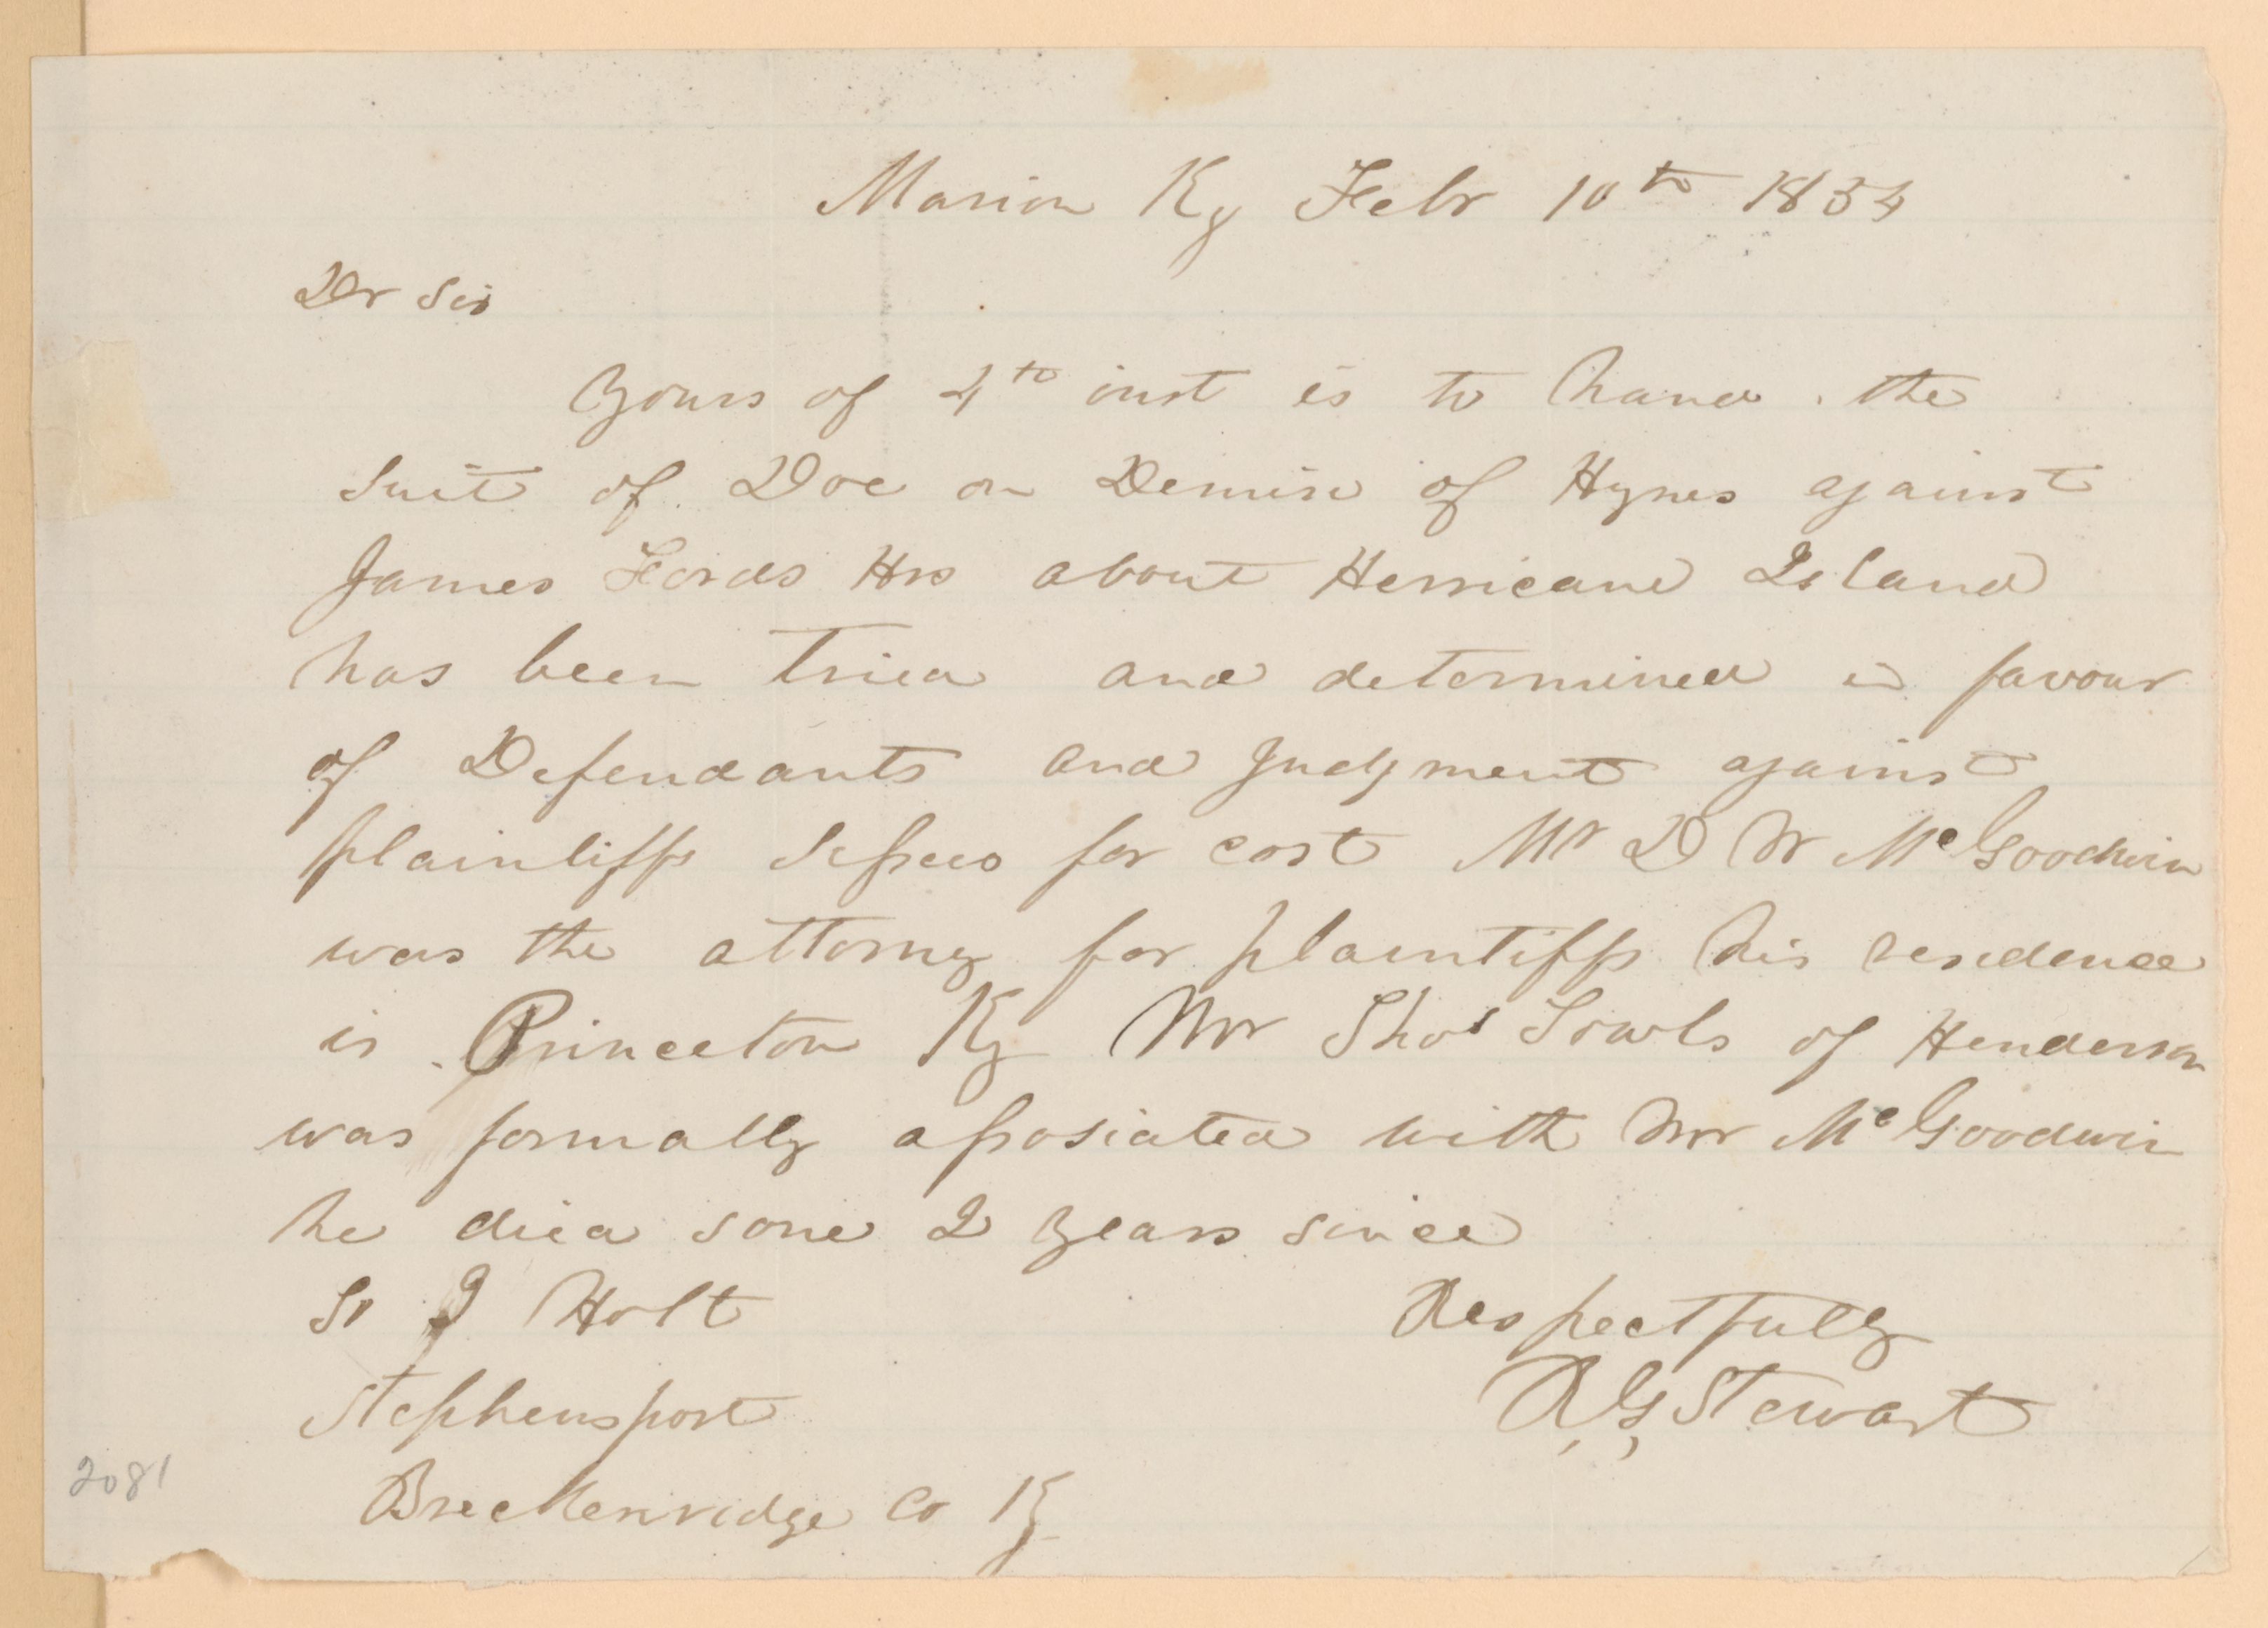 Marion Ky Febr 10th 1854
Dr Sir
Yours of 4th inst is to hand. the
Suit of Doe on Demise of Hynes against
James Fords Hrs about Herricane Island
has been tried and determined in favour
of Defendants and Judgment against
plaintiffs lessees for cost Mr D W McGoodwin
was the attorney for plaintiffs his residence
is Princeton Ky Mr Thos Towls of Henderson
was formally assosiated with Mr McGoodwin
he died some 2 years since
To J Holt
Respectfully
Stephensport
R, G, Stewart
Breckenridge Co Ky
2081